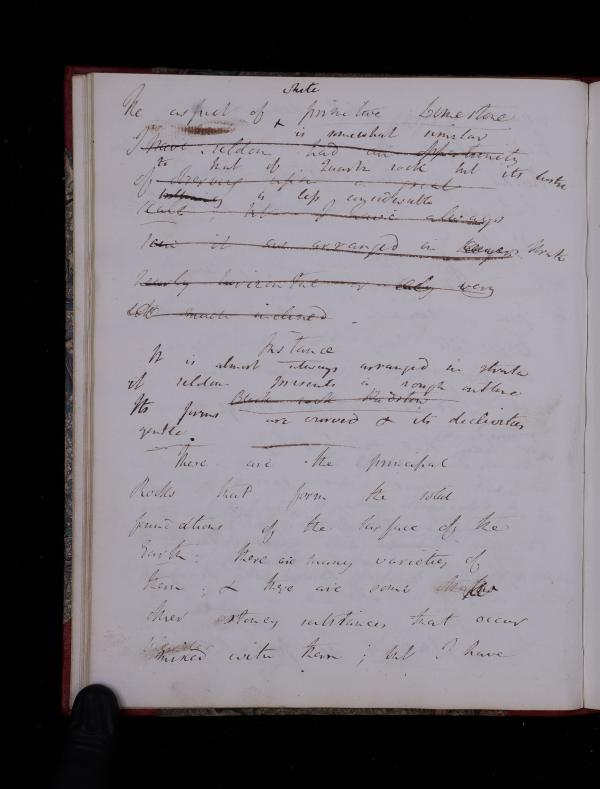 white
The aspect of primitive Limestone
& is somewhat similar
I have seldom had an opportunity
to that of Quartz rock but its lustre
of
is less considerable
I have always
seen it as arranged in strata
nearly horizontal or only very
not much inclined
Instance
It is almost always arranged in strata
it seldom presents a rough outline
Its forms are curved & its declivities
gentle.
These are the principal
Rocks that form the solid
foundations of the surface of the
Earth: there are many varieties of
them; & there are some
other stoney substances that occur
mixed with them; but I have